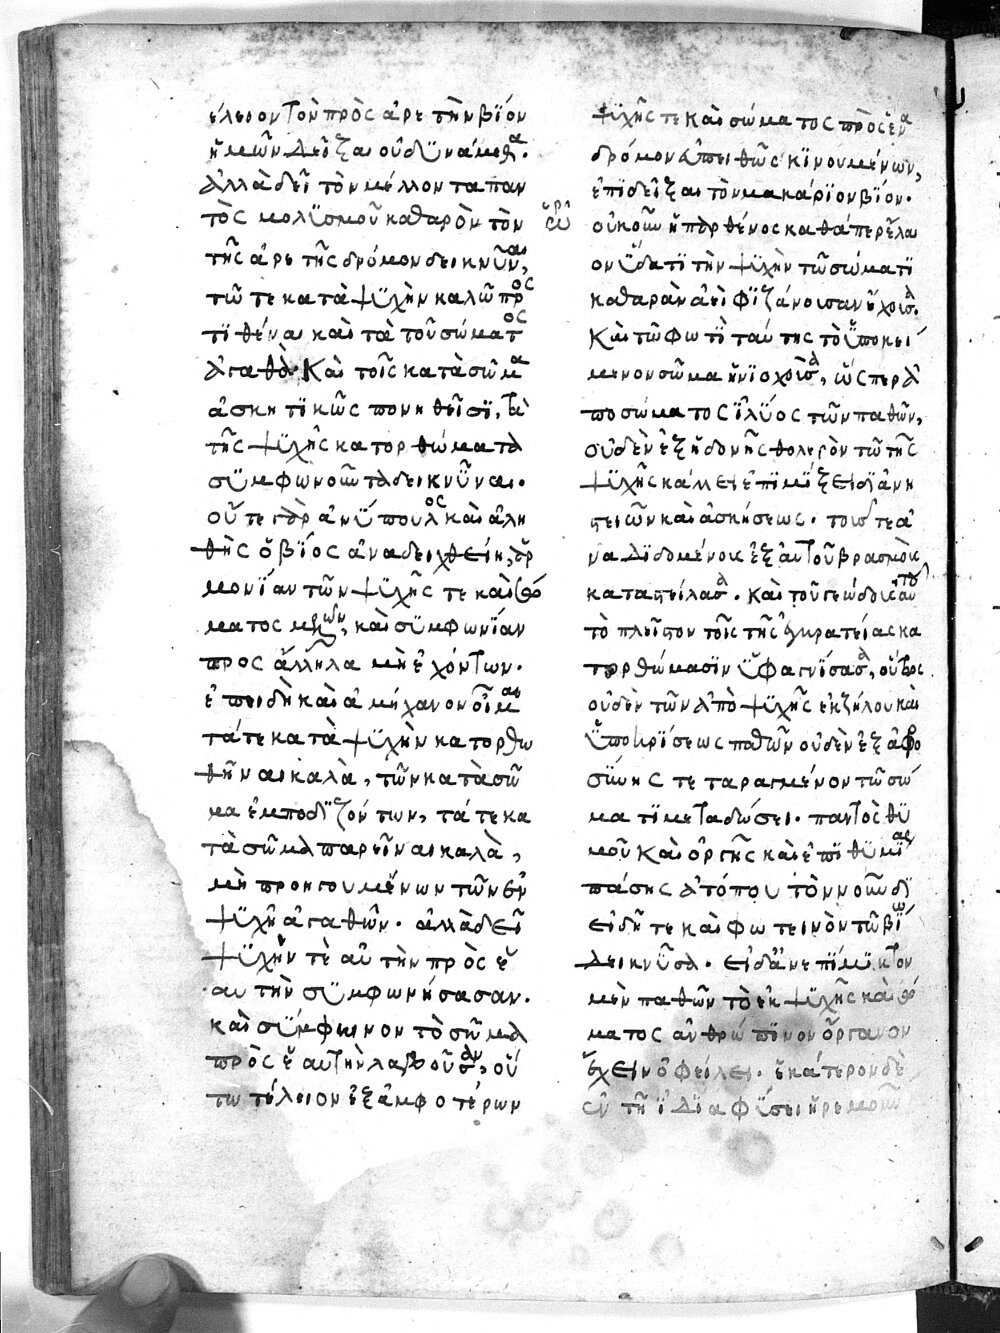 έλειον τὸν πρὸς ἀρετὴν βίον
ἡμῶν δεῖξαι οὐ δυνάμεθα.
ἀλλὰ δεῖ τὸν μέλλοντα παν
τὸς μολυσμοῦ καθαρὸν τὸν
τῆς ἀρετῆς δρόμον δεικνῦναι,
τῶ τε κατὰ ψυχὴν καλῶ προσ
τιθέναι καὶ τὰ τοῦ σώματος
ἀγαθὰ. Καὶ τοῖς κατὰ σῶμα
ἀσκητικῶς πονηθεῖσι, τὰ
τῆς ψυχῆς κατορθώματα
σύμφωνον τὰ δεικνῦναι.
οὔτε γὰρ ἀνύπουλος καὶ ἀλη
θὴς ὁ βίος ἀναδειχθείη, ἁρ
μονίαν τῶν ψυχῆς τε καὶ σώ
ματος μερῶν, καὶ συμφωνίαν
προς ἄλληλα μὴ ἐχόντων.
ἐπειδὴ καὶ ἀμήχανον οἶμαι
τά τε κατὰ ψυχὴν κατορθω
θῆναι καλὰ, τῶν κατὰ σῶ
μα ἐμποδιζόντων, τά τε κα
τὰ σῶμα παρεῖναι καλὰ,
μὴ προηγουμένων τῶν ἐν
ψυχῆ ἀγαθῶν. ἀλλὰ δεῖ
ψυχὴν τὲ αὐτὴν πρὸς ἑ
αυτὴν συμφωνήσασαν.
καὶ σύμφωνον τὸ σῶμα
πρὸς ἑαυτὴν λαβοῦσαν, οὕ
τω τέλειον ἐξ ἀμφοτέρων
ψυχῆς τε καὶ σώματος πρὸς ἕνα
δρόμον εὐπειθῶς κινουμένων,
ἐπιδεῖξαι τὸν μακάριον βίον.
οὐκοῦν ἡ παρθένος καθάπερ ἔλαι
ον ὕδατι τὴν ψυχὴν τῶ σώματι
καθαρὰν ἀεὶ ἐφιζάνουσαν ἔχουσα.
Καὶ τῶ φωτὶ ταύτης τὸ ὑποκεί
μενον σῶμα ἡνιοχοῦσα, ὥσπερ ἀ
πο σώματος ἰλύος τῶν παθῶν,
οὐδὲν ἐξ ἡδονῆς θολερὸν τῶ τῆς
ψυχῆς κάλλει ἐπιμίξει διὰ νη
στειῶν καὶ ἀσκήσεως.
να διδομένοις ἐξ αὐτοῦ βρασμοῖς
καταστείλασα. Καὶ τοῦ γεώδους αὐτοῦ
τὸ πλεῖστον τοῖς τῆς ἐγκρατείας κα
τορθώμασιν ὑφαγνίσασα, οὕτως
οὐδὲν τῶν ἀπὸ ψυχῆς ἐκ ζήλου καὶ
ὑποκρίσεως παθῶν οὐδὲν ἐξ ἀφρο
σύνης τεταραγμένον τῶ σώ
ματι μεταδώσει. παντὸς θυ
μοῦ καὶ ὀργῆς καὶ ἐπιθυμίας
πάσης ἀτόπου τὸν νοῦν δι
ειδῆ τε καὶ φωτεινὸν τῶ βίω
δεικνῦσα. εἰ δὲ ἀνεπίμικτον
μὲν παθῶν τὸ ἐκ ψυχῆς καὶ σώ
ματος ἀνθρώπινον ὄργανον
ἔχειν ὀφείλει. ἑκάτερον δὲ
ἐν τῆ ἰδία φύσει ἠρεμοῦν